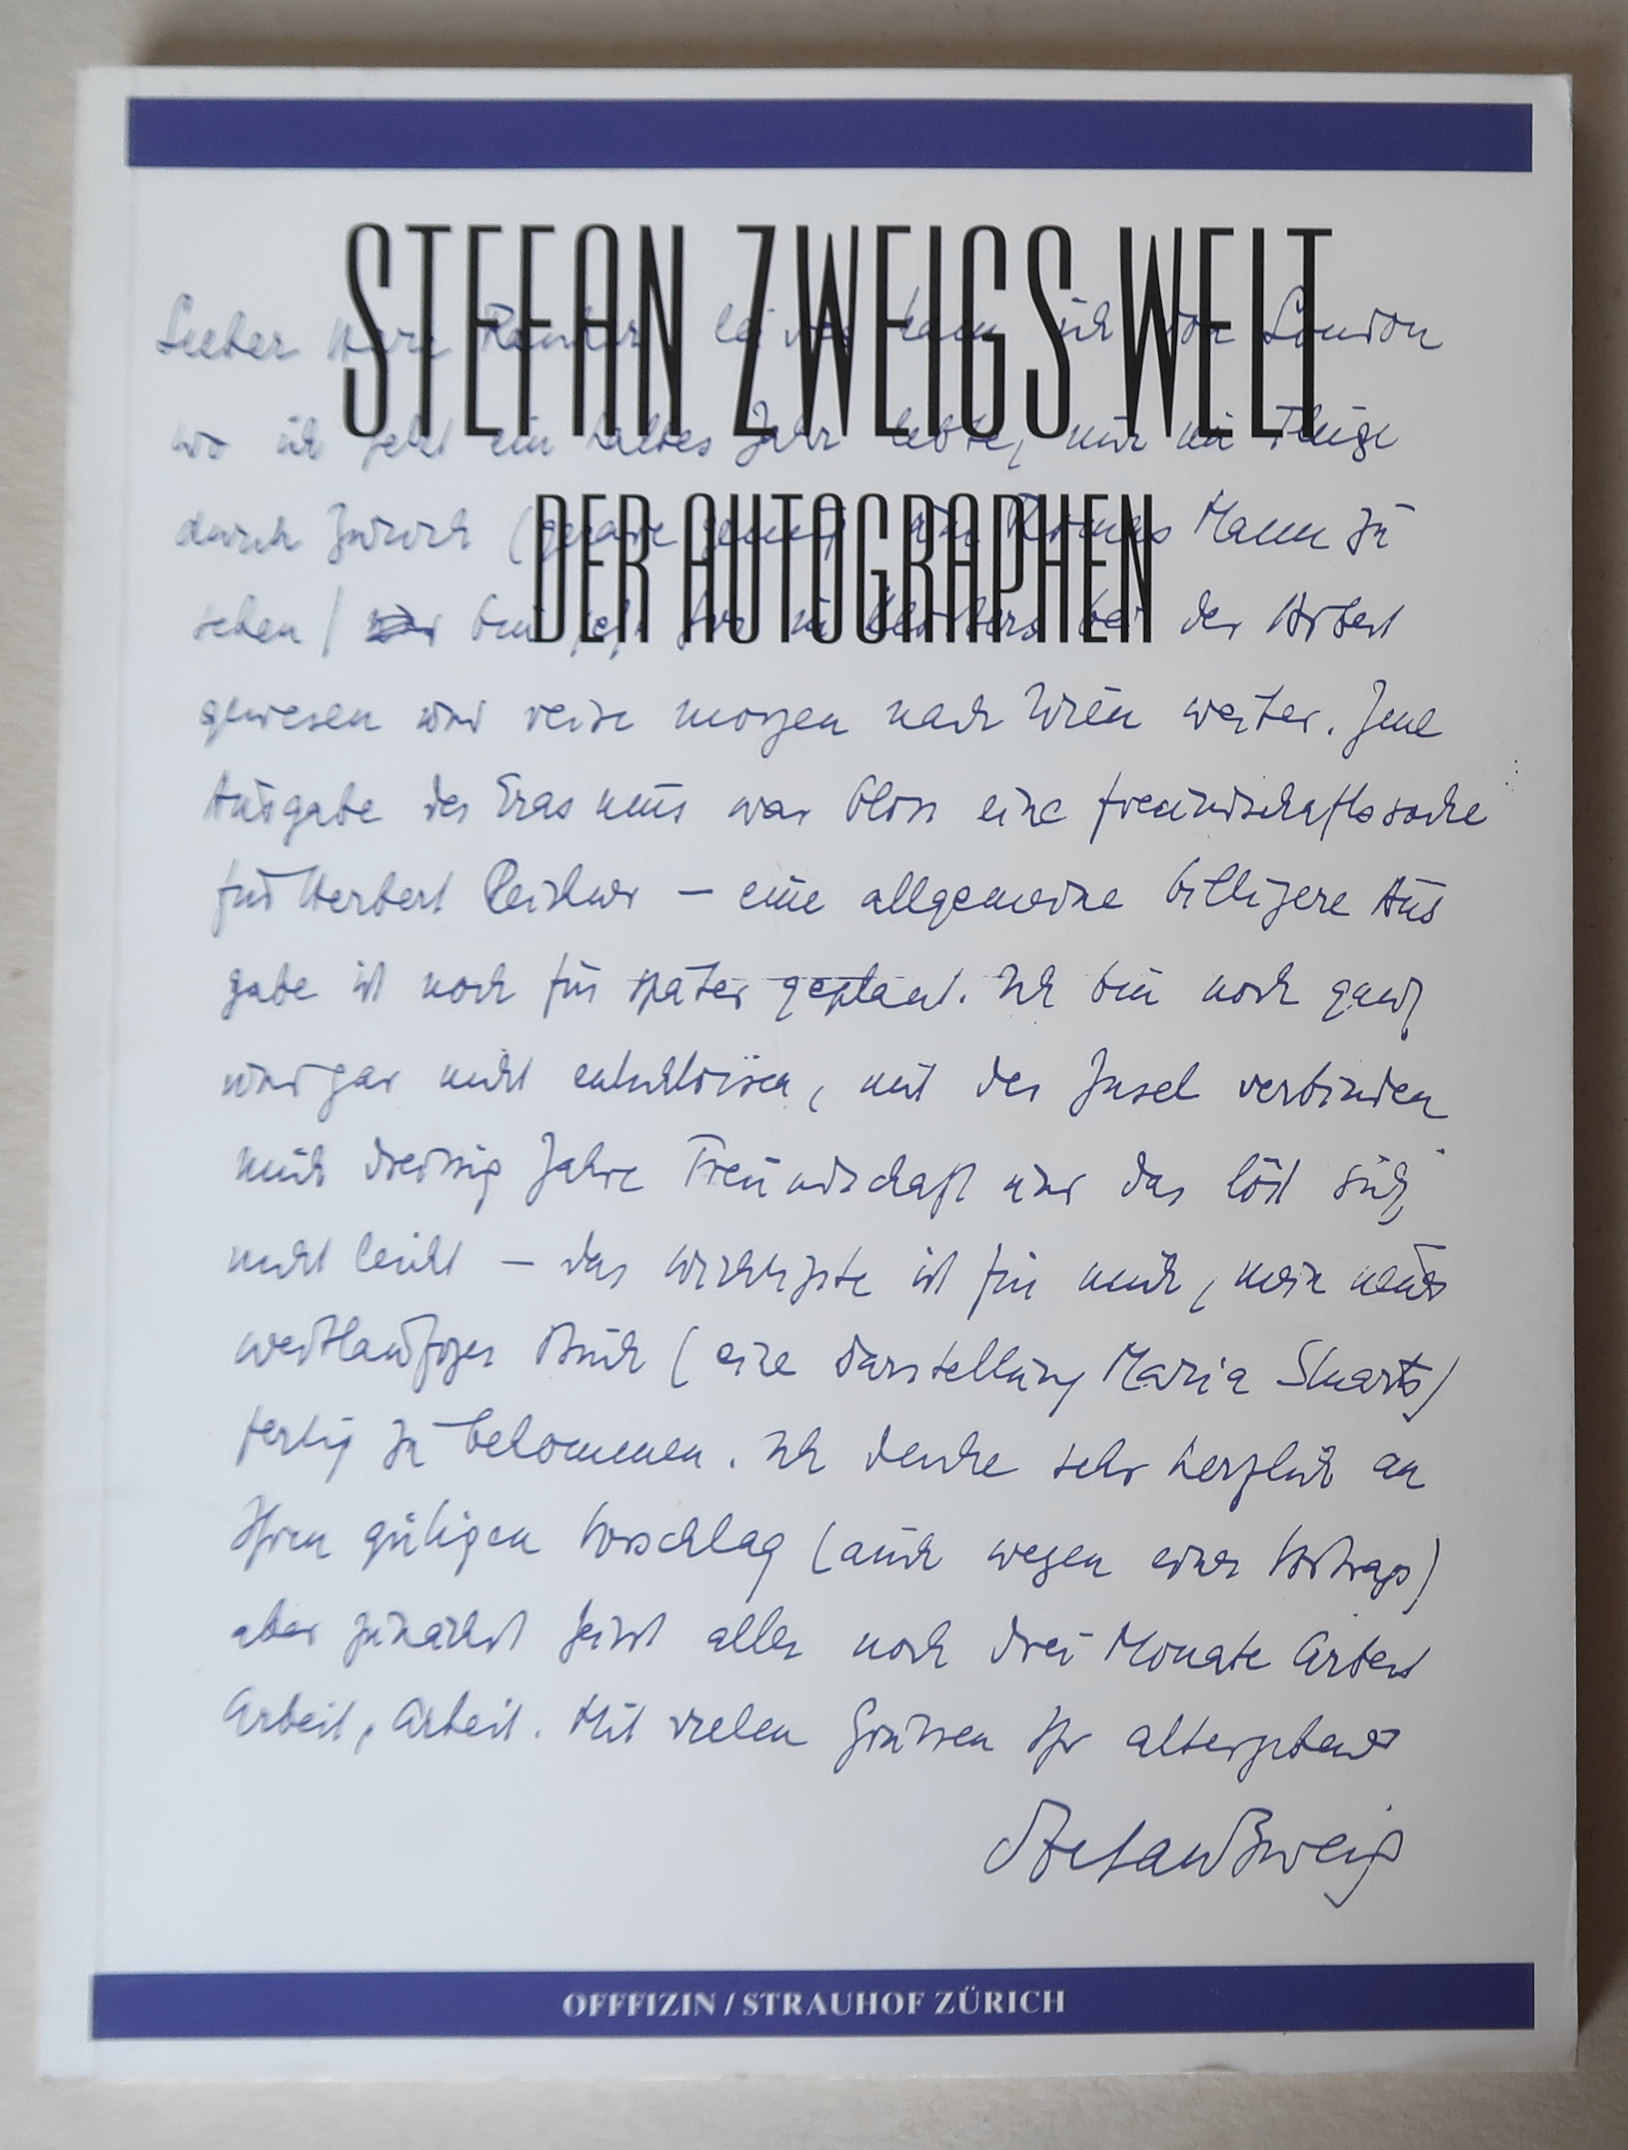 STEFAN ZWEIGS WELT
DER AUTOGRAPHEN
Lieber Herr leider kam ich von London
wo ich jetzt ein halbes Jahr lebte, nur im Fluge
durch Zürich (gerade genug um Thomas Mann zu
sehen) bin jetzt hier in bei der Arbeit
gewesen und reise morgen nach Wien weiter. Jene
Ausgabe des Erasmus war bloss eine Freundschaftssache
für Herbert Reichner – eine allgemeine billigere Aus
gabe ist noch für später geplant. Ich bin noch ganz
und gar nicht entschlossen, mit der Insel verbinden
mich dreissig Jahre Freundschaft und das löst sich
nicht leicht – das wichtigste ist für mich, mein neues
weitläufiges Buch (eine Darstellung Maria Stuarts)
fertig zu bekommen. Ich denke sehr herzlich an
Ihren gütigen Vorschlag (auch wegen eines Vortrags)
aber zunächst heisst alles noch drei Monate Arbeit
Arbeit, Arbeit. Mit vielen Grüssen Ihr altergebener
Stefan Zweig
OFFFIZIN / STRAUHOF ZÜRICH